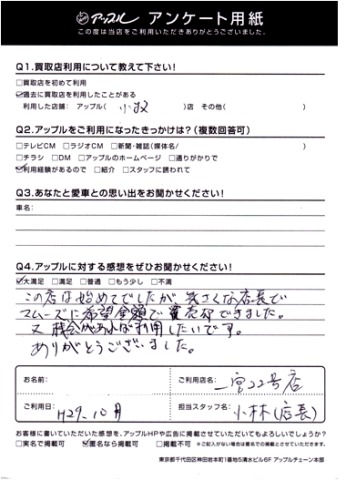 アップル アンケート用紙
この度は当店をご利用いただきありがとうございました。
Q1.買取店利用について教えて下さい!
□買取店を初めて利用
☑過去に買取店を利用したことがある
利用した店舗: アップル( 小牧 )店 その他( )
Q2.アップルをご利用になったきっかけは?(複数回答可)
□テレビCM □ラジオCM □新聞・雑誌(媒体名/ )
□チラシ □DM □アップルのホームページ □通りがかりで
☑利用経験があるので □紹介 □スタッフに誘われて
Q3.あなたと愛車との思い出をお聞かせください!
車名:
Q4.アップルに対する感想をぜひお聞かせください!
☑大満足 □満足 □普通 □もう少し □不満
この店は始めてでしたが 気さくな店長で
スムーズに希望金額で 売却できました。
又 機会があれば利用したいです。
ありがとうございました。
お名前:
ご利用店名: 一宮22号店
ご利用日: H29.10月
担当スタッフ名: 小林(店長)
お客様に書いていただいた感想を、アップルHPや広告に掲載させていただいてもよろしいでしょうか?
□実名で掲載可 ☑匿名なら掲載可 □掲載不可 ※ご記入がない場合は匿名での掲載とさせていただきます。
東京都千代田区神田岩本町1番地5清水ビル6F アップルチェーン本部